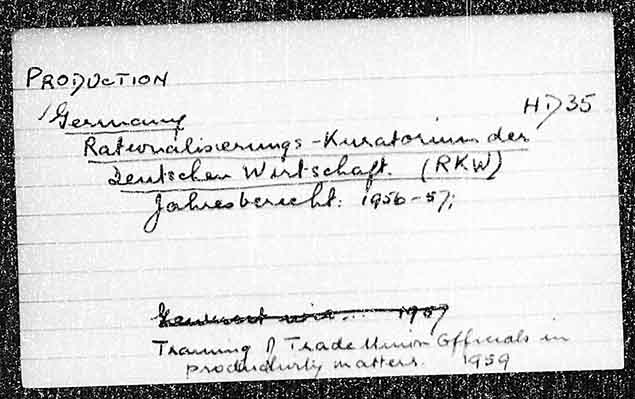 PRODUCTION
Germany HD 35
Rationalisierungs-Kuratorium der
Deutschen Wirtschaft. (RKW)
Jahresbericht: 1956-57;
1957
Training of Trade Union Officials in
productivity matters. 1959